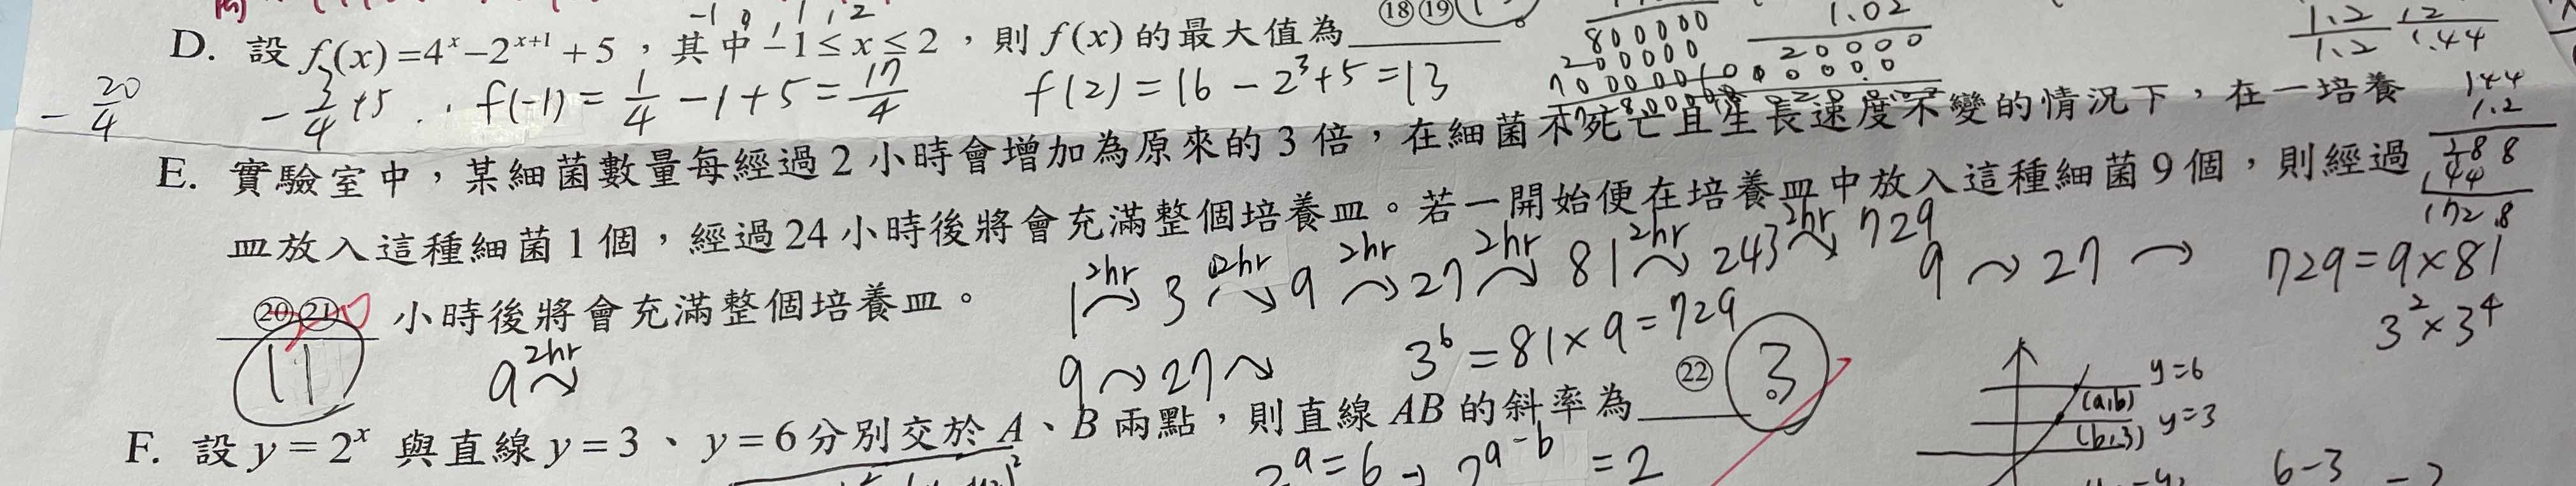 -1 0 1 2
D. 設 f(x)=4^x-2^{x+1}+5，其中 -1≤x≤2，則 f(x) 的最大值為______。
⑱⑲
-20/4
-3/4+5
f(-1)=1/4-1+5=17/4
f(2)=16-2^3+5=13
800000
1.02
20000
1.2
1.2
1.2
1.44
144
1.2
288
144
172.8
E. 實驗室中，某細菌數量每經過 2 小時會增加為原來的 3 倍，在細菌不死亡且生長速度不變的情況下，在一培養
皿放入這種細菌 1 個，經過 24 小時後將會充滿整個培養皿。若一開始便在培養皿中放入這種細菌 9 個，則經過
⑳㉑ 小時後將會充滿整個培養皿。
11
1 2hr 3 2hr 9 2hr 27 2hr 81 2hr 243 2hr 729
9 27
729=9×81
3^2×3^4
9 2hr
9 27
3^6=81×9=729
y=6
(a,b)
y=3
(b,3)
F. 設 y=2^x 與直線 y=3、y=6 分別交於 A、B 兩點，則直線 AB 的斜率為______
㉒
3
2^a=6→2^{a-b}=2
6-3